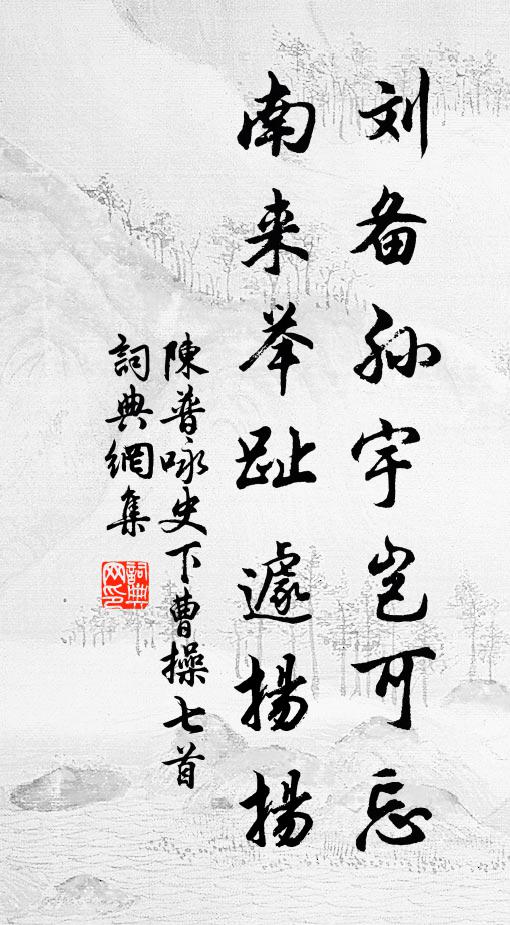 刘备孙宇岂可忘
南来举趾遽揚揚
陳普咏史下曹操七首
詞典網集
詞典网印